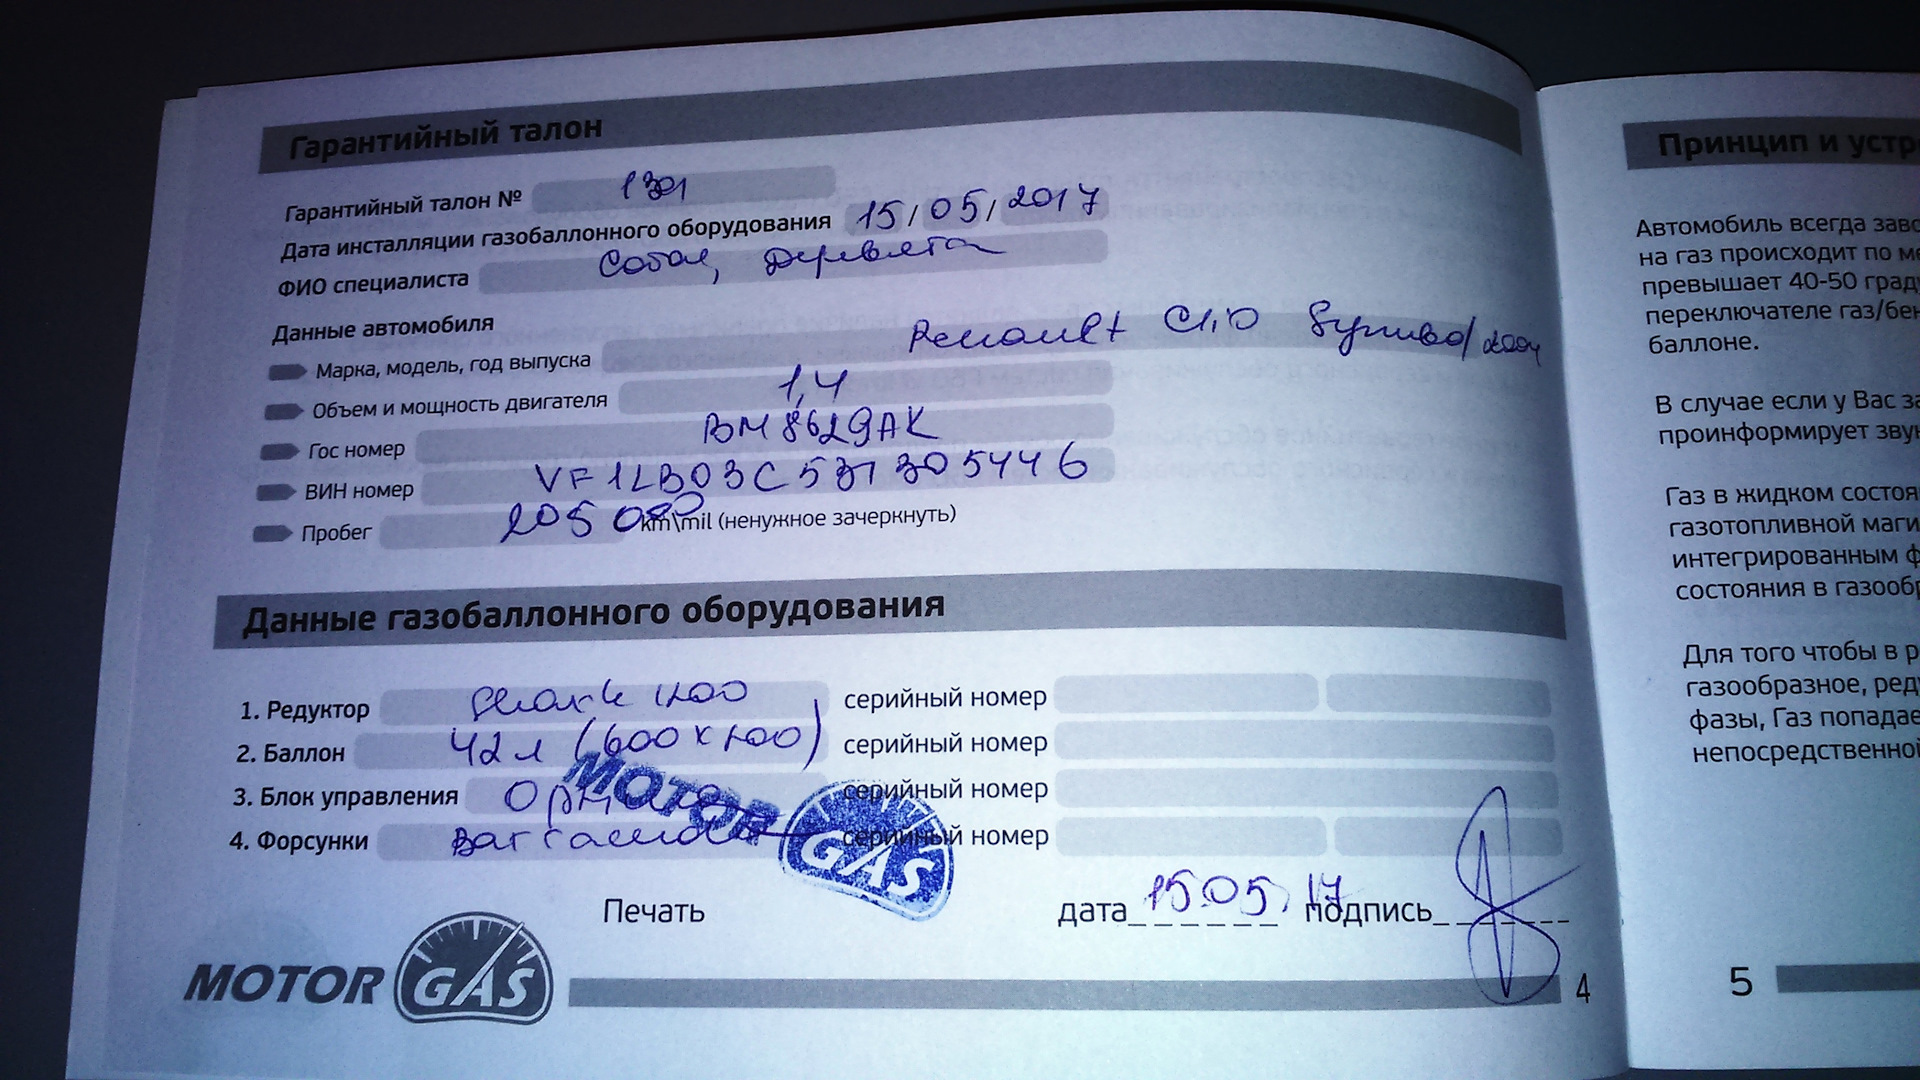 Гарантийный талон
Гарантийный талон №
Дата инсталляции газобаллонного оборудования 15/05/2017
ФИО специалиста
Данные автомобиля
Марка, модель, год выпуска Renault Clio Symbol/2004
Объем и мощность двигателя 1,4
Гос номер ВМ8629АК
ВИН номер VF1LB03C531305446
Пробег 205 000 km\mil (ненужное зачеркнуть)
Данные газобаллонного оборудования
1. Редуктор 1200 серийный номер
2. Баллон 42л (600x200) серийный номер
3. Блок управления серийный номер
4. Форсунки серийный номер
MOTOR GAS
Печать дата 15.05.17 подпись
MOTOR GAS
4
Принцип и устр
Автомобиль всегда заво
на газ происходит по ме
превышает 40-50 граду
переключателе газ/бен
баллоне.
В случае если у Вас за
проинформирует звук
Газ в жидком состоя
газотопливной маги
интегрированным ф
состояния в газообр
Для того чтобы в р
газообразное, ред
фазы, Газ попадае
непосредственной
5